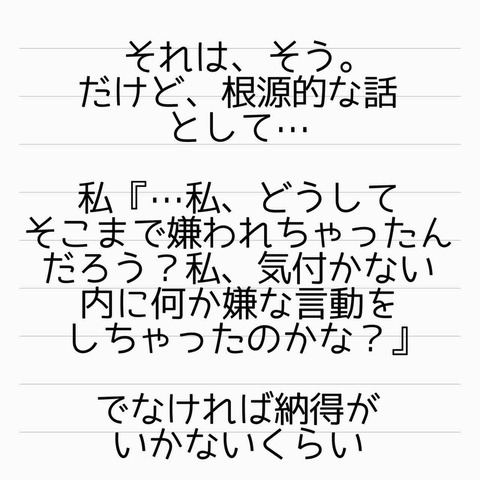 それは、そう。
だけど、根源的な話
として…
私『…私、どうして
そこまで嫌われちゃったん
だろう？私、気付かない
内に何か嫌な言動を
しちゃったのかな？』
でなければ納得が
いかないくらい